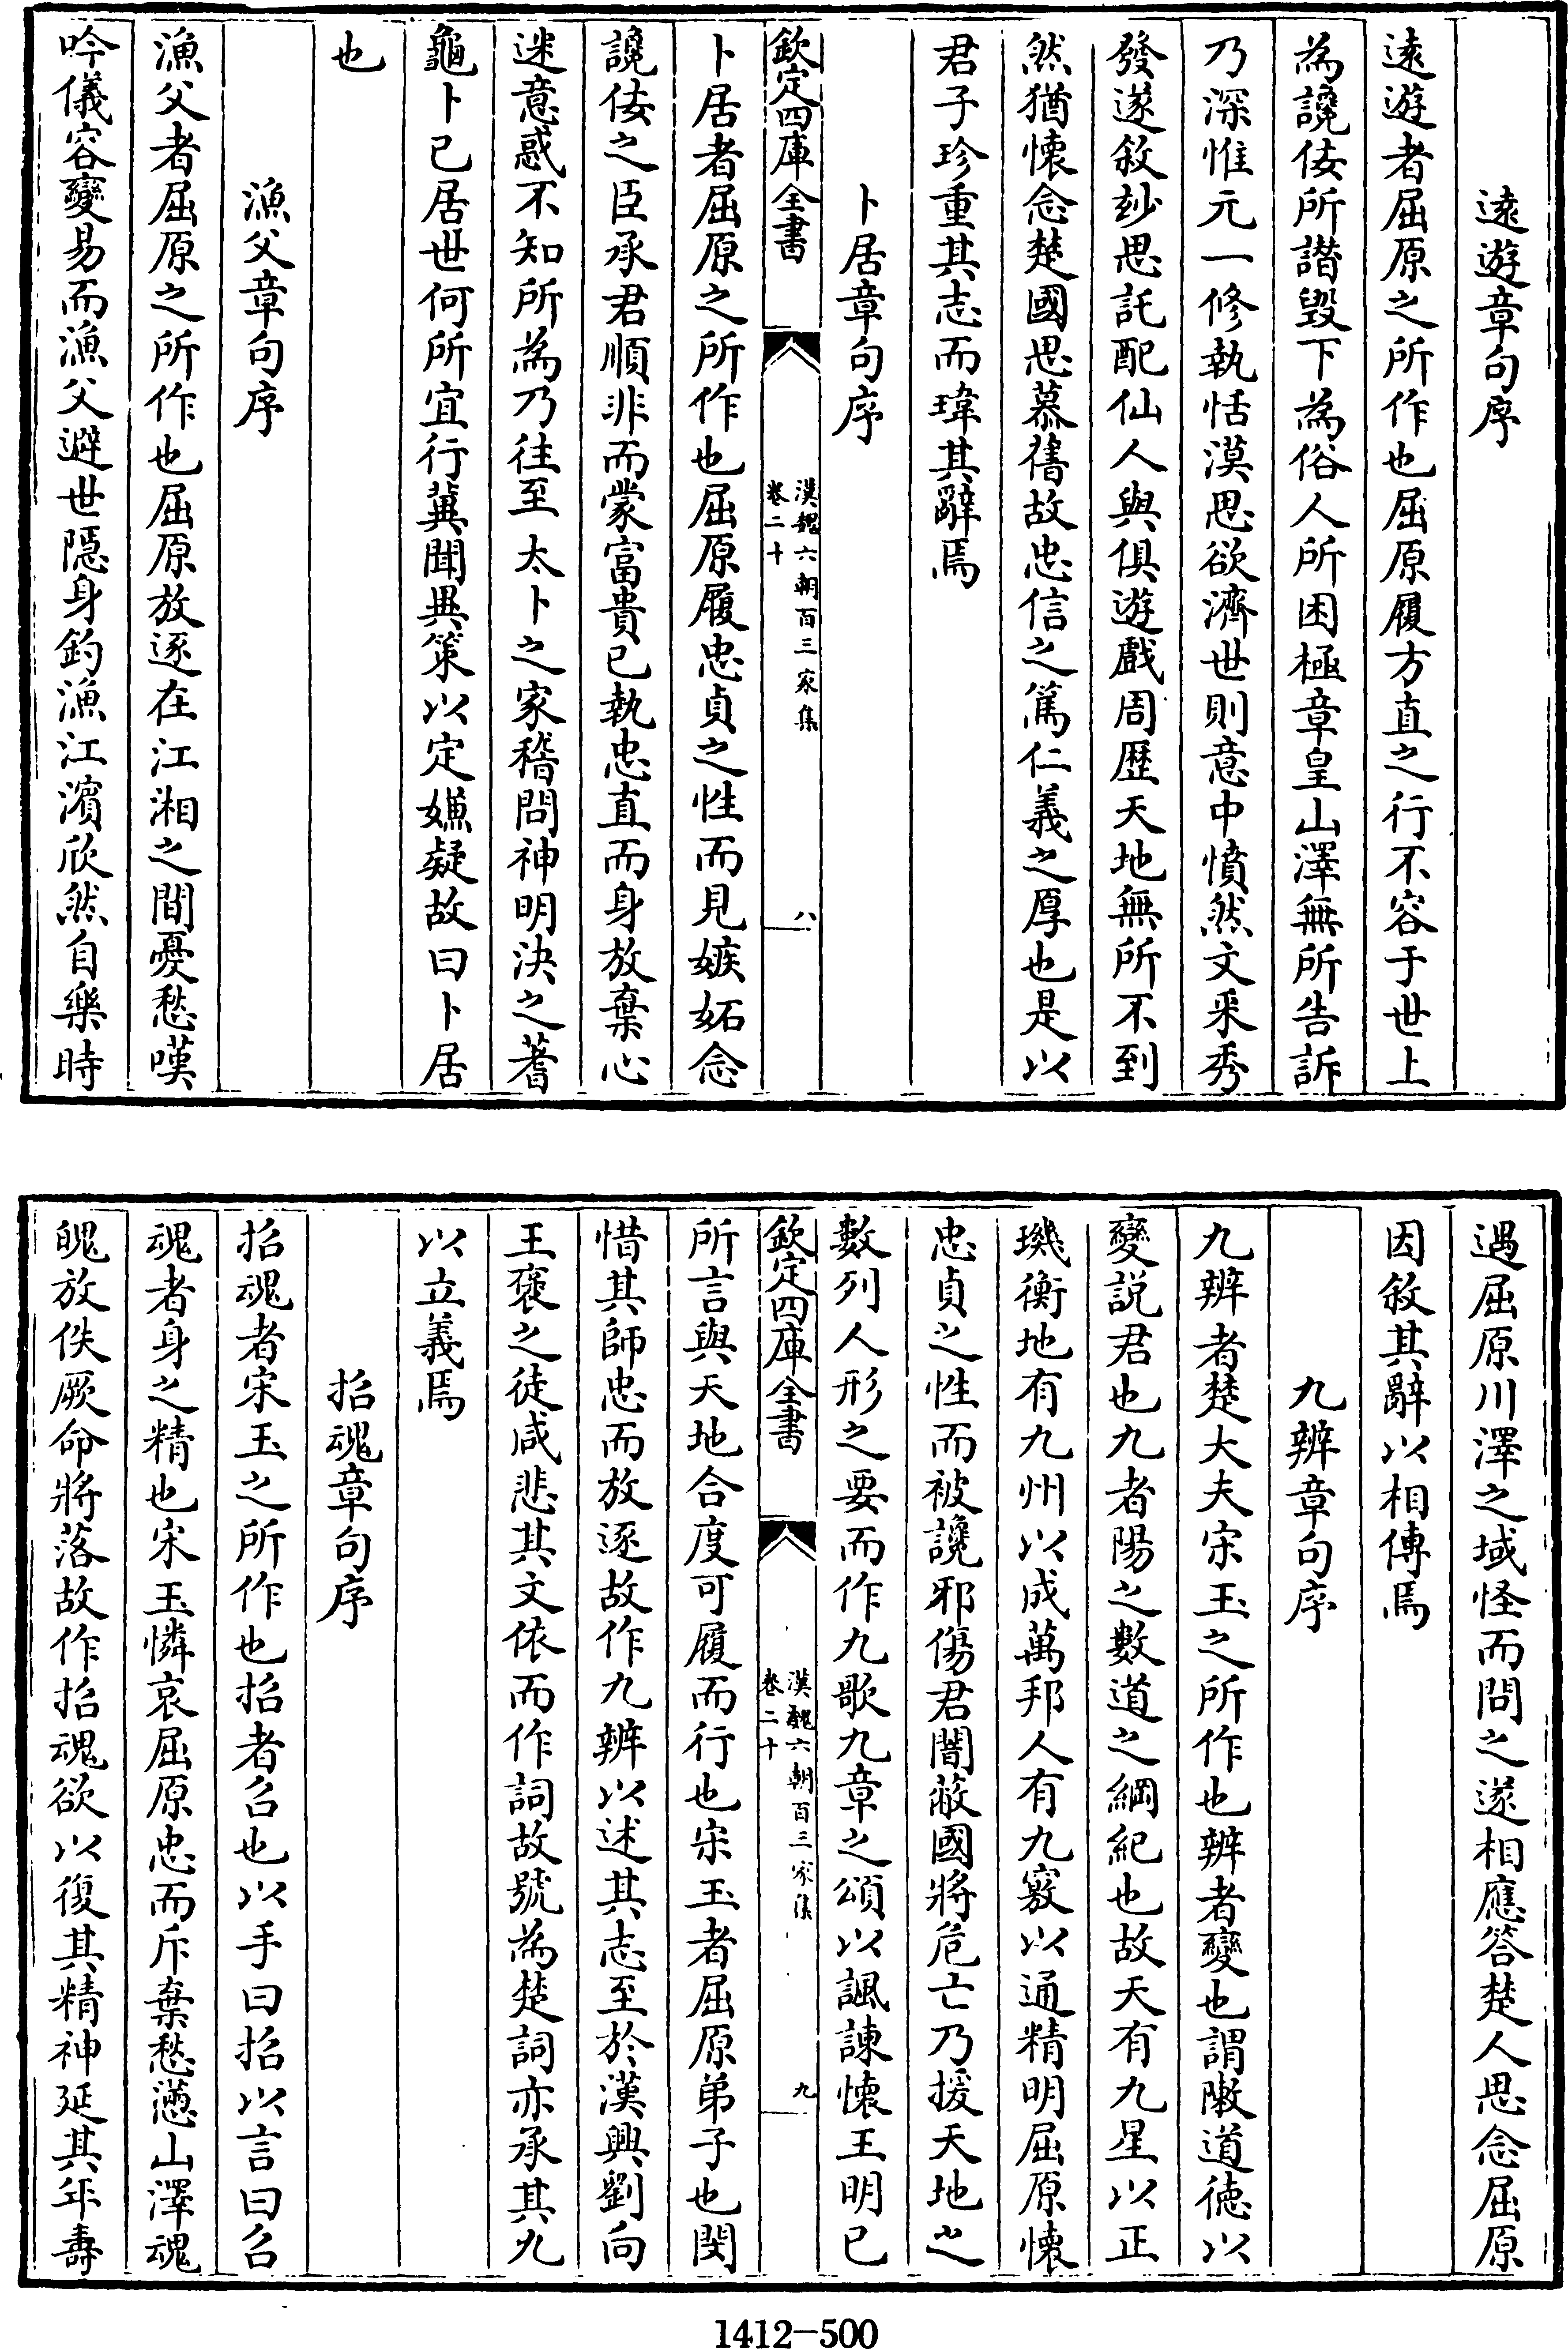 遠遊章句序
遠遊者屈原之所作也屈原履方直之行不容于世上
為讒佞所譖毀下為俗人所困極章皇山澤無所告訴
乃深惟元一修執恬漠思欲濟世則意中憤然文采秀
發遂敘妙思託配仙人與俱遊戲周歷天地無所不到
然猶懷念楚國思慕舊故忠信之篤仁義之厚也是以
君子珍重其志而瑋其辭焉
卜居章句序
欽定四庫全書
漢魏六朝百三家集
卷二十
八
卜居者屈原之所作也屈原履忠貞之性而見嫉妬念
讒佞之臣承君順非而蒙富貴已執忠直而身放棄心
迷意惑不知所為乃往至太卜之家稽問神明決之蓍
龜卜已居世何所宜行冀聞異策以定嫌疑故曰卜居
也
漁父章句序
漁父者屈原之所作也屈原放逐在江湘之間憂愁嘆
吟儀容變易而漁父避世隱身釣漁江濱欣然自樂時
遇屈原川澤之域怪而問之遂相應答楚人思念屈原
因敘其辭以相傳焉
九辨章句序
九辨者楚大夫宋玉之所作也辨者變也謂敶道德以
變說君也九者陽之數道之綱紀也故天有九星以正
璣衡地有九州以成萬邦人有九竅以通精明屈原懷
忠貞之性而被讒邪傷君闇蔽國將危亡乃援天地之
數列人形之要而作九歌九章之頌以諷諫懷王明已
欽定四庫全書
漢魏六朝百三家集
卷二十
九
所言與天地合度可履而行也宋玉者屈原弟子也閔
惜其師忠而放逐故作九辨以述其志至於漢興劉向
王褒之徒咸悲其文依而作詞故號為楚詞亦承其九
以立義焉
招魂章句序
招魂者宋玉之所作也招者召也以手曰招以言曰召
魂者身之精也宋玉憐哀屈原忠而斥棄愁懣山澤魂
魄放佚厥命將落故作招魂欲以復其精神延其年壽
1412-500